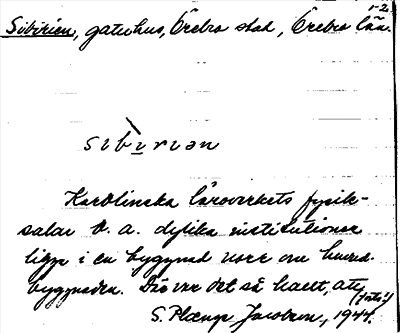 1-2
Sibirien, gatuhus, Örebro stad, Örebro län.
sibìriən
Karolinska läroverkets fysik-
salar o. a. dylika institutioner
ligga i en byggnad norr om huvud-
byggnaden. Där var det så kallt, att
(forts.)
S. Plænge Jacobson, 1944.